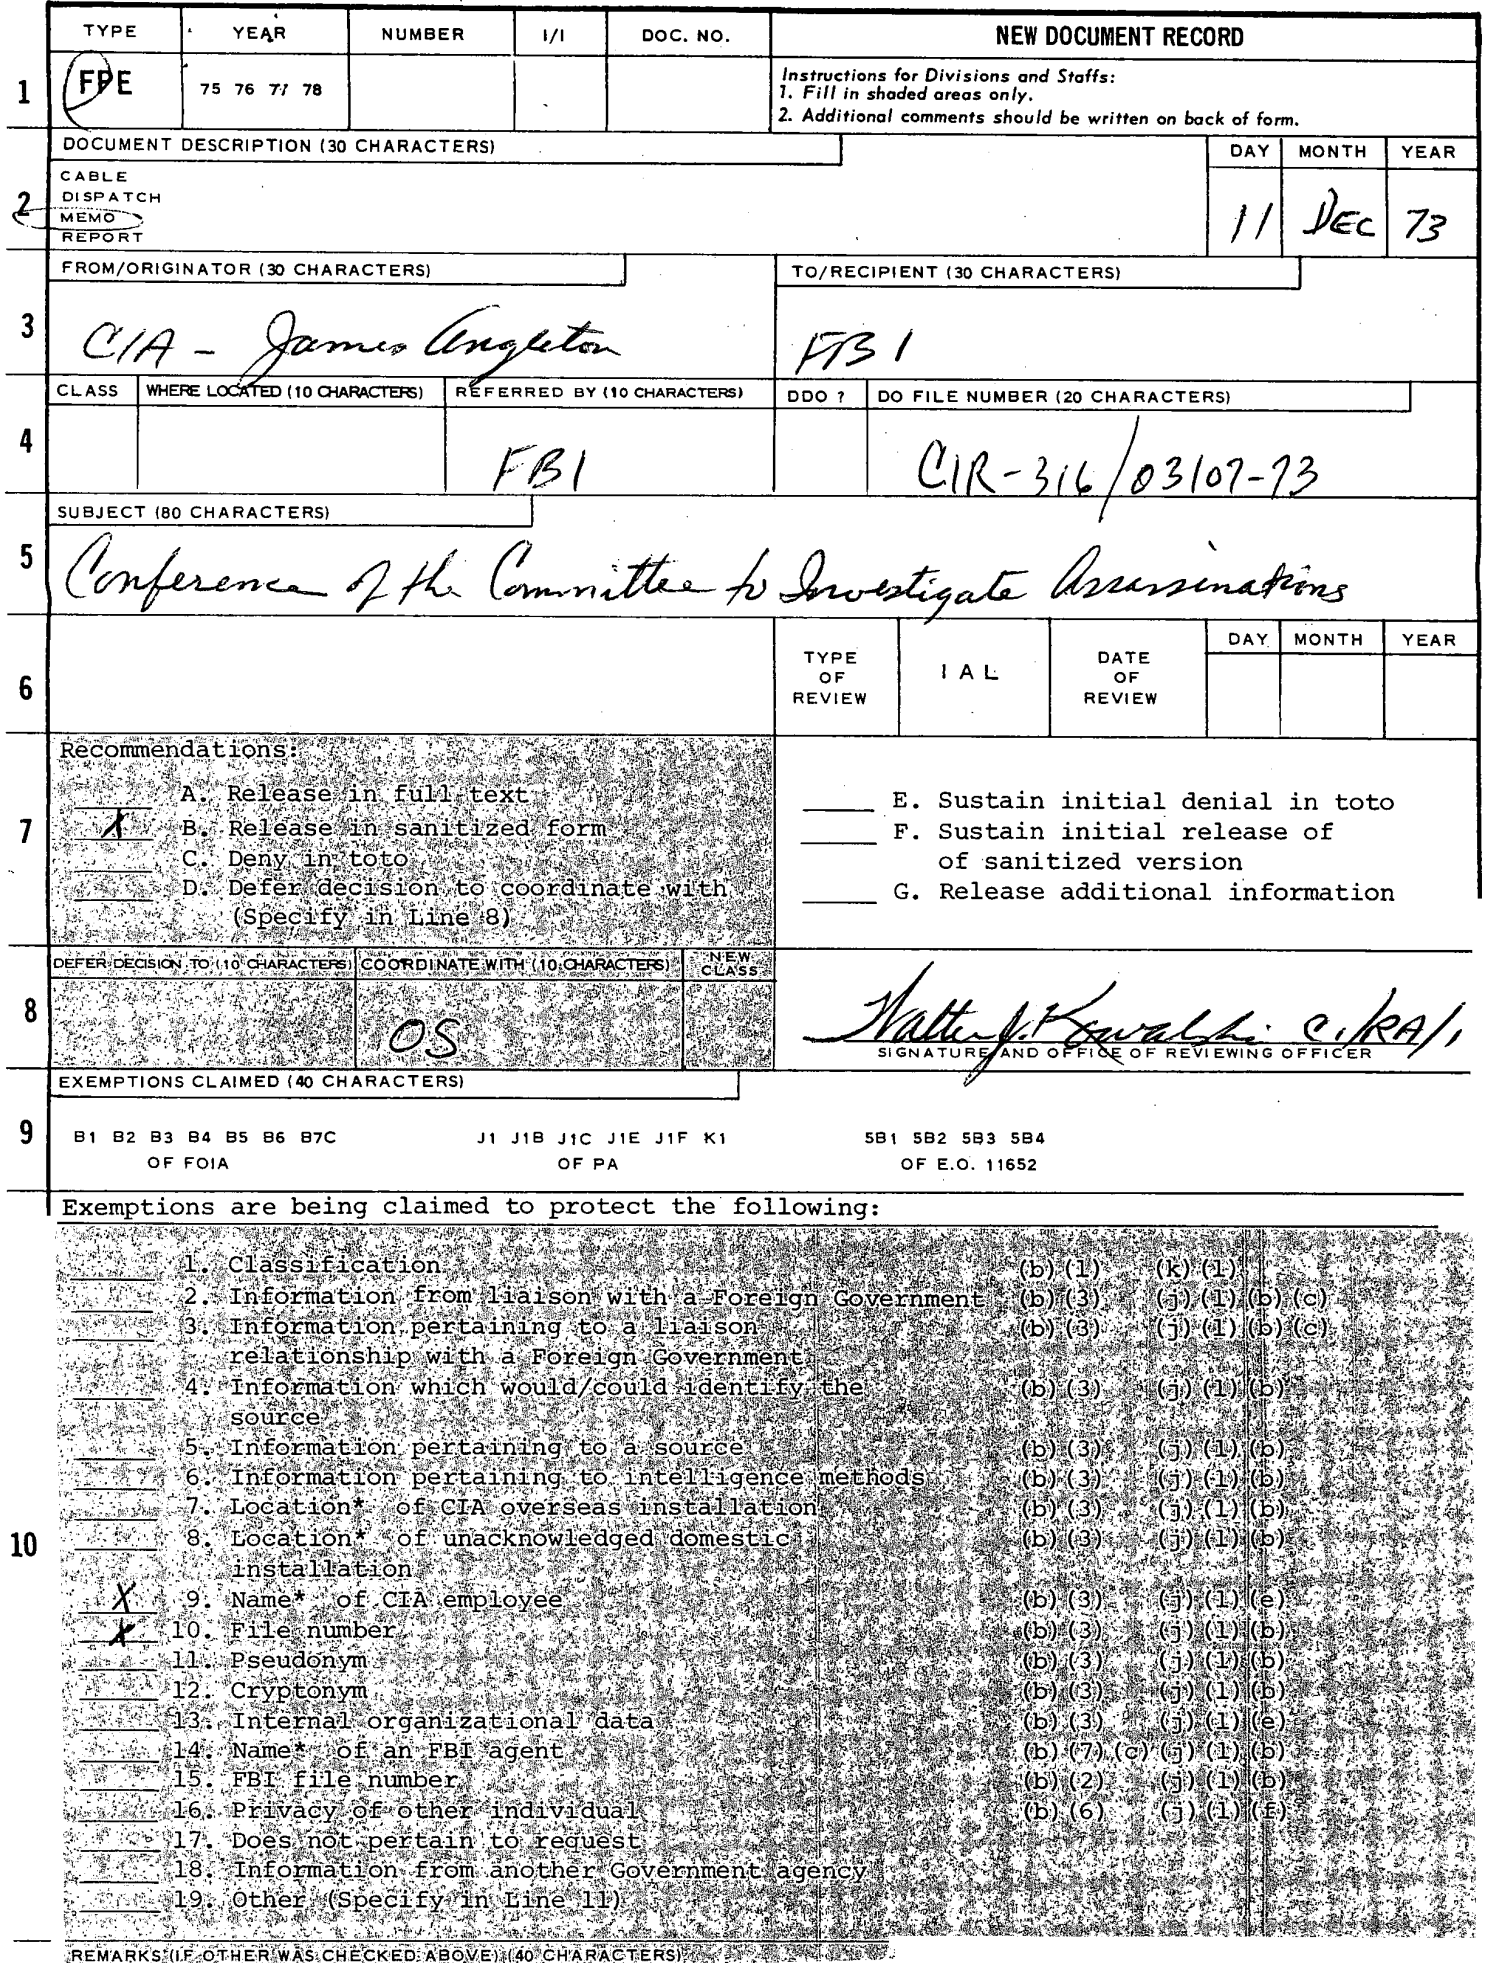 TYPE YEAR NUMBER 1/1 DOC. NO. NEW DOCUMENT RECORD
1 FPE 75 76 77 78
Instructions for Divisions and Staffs:
1. Fill in shaded areas only.
2. Additional comments should be written on back of form.
DOCUMENT DESCRIPTION (30 CHARACTERS) DAY MONTH YEAR
CABLE
DISPATCH
2 MEMO 11 DEC 73
REPORT
FROM/ORIGINATOR (30 CHARACTERS) TO/RECIPIENT (30 CHARACTERS)
3 CIA - James Angleton FBI
CLASS WHERE LOCATED (10 CHARACTERS) REFERRED BY (10 CHARACTERS) DDO ? DO FILE NUMBER (20 CHARACTERS)
4 FBI CIR-316/03107-73
SUBJECT (80 CHARACTERS)
5 Conference of the Committee to Investigate Assassinations
6 TYPE OF REVIEW I A L DATE OF REVIEW DAY MONTH YEAR
Recommendations:
A. Release in full text
7 X B. Release in sanitized form
C. Deny in toto
D. Defer decision to coordinate with
(Specify in Line 8)
E. Sustain initial denial in toto
F. Sustain initial release of
of sanitized version
G. Release additional information
DEFER DECISION TO (10 CHARACTERS) COORDINATE WITH (10 CHARACTERS) NEW CLASS
8 OS Walter J. Kowalski C.I/RA/1
SIGNATURE AND OFFICE OF REVIEWING OFFICER
EXEMPTIONS CLAIMED (40 CHARACTERS)
9 B1 B2 B3 B4 B5 B6 B7C J1 J1B J1C J1E J1F K1 5B1 5B2 5B3 5B4
OF FOIA OF PA OF E.O. 11652
Exemptions are being claimed to protect the following:
1. Classification (b)(1) (k)(1)
2. Information from liaison with a Foreign Government (b)(3) (j)(1)(b)(c)
3. Information pertaining to a liaison (b)(3) (j)(1)(b)(c)
relationship with a Foreign Government
4. Information which would/could identify the (b)(3) (j)(1)(b)
source
5. Information pertaining to a source (b)(3) (j)(1)(b)
6. Information pertaining to intelligence methods (b)(3) (j)(1)(b)
7. Location* of CIA overseas installation (b)(3) (j)(1)(b)
10 8. Location* of unacknowledged domestic (b)(3) (j)(1)(b)
installation
X 9. Name* of CIA employee (b)(3) (j)(1)(e)
X 10. File number (b)(3) (j)(1)(b)
11. Pseudonym (b)(3) (j)(1)(b)
12. Cryptonym (b)(3) (j)(1)(b)
13. Internal organizational data (b)(3) (j)(1)(e)
14. Name* of an FBI agent (b)(7)(c) (j)(1)(b)
15. FBI file number (b)(2) (j)(1)(b)
16. Privacy of other individual (b)(6) (j)(1)(f)
17. Does not pertain to request
18. Information from another Government agency
19. Other (Specify in Line 11)
REMARKS (IF OTHER WAS CHECKED ABOVE) (40 CHARACTERS)